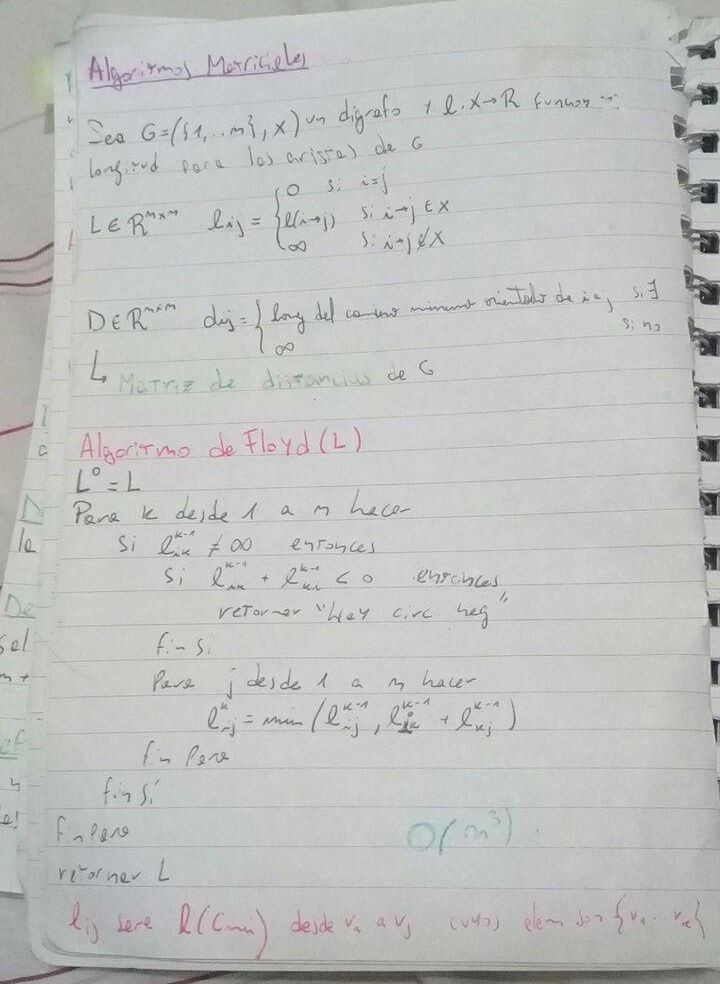 Algoritmos Matriciales
Sea G=({1,..n}, X) un digrafo y l: X→R función
longitud para las aristas de G
L ∈ R^{n×n} l_{ij} = { 0 si i=j
l(i→j) si i→j ∈ X
∞ si i→j ∉ X
D ∈ R^{n×n} d_{ij} = { long del camino minimo orientado de i a j si ∃
∞ si no
↳ Matriz de distancias de G
Algoritmo de Floyd (L)
L^0 = L
Para k desde 1 a n hacer
Si l_{ik}^{k-1} ≠ ∞ entonces
Si l_{ik}^{k-1} + l_{ki}^{k-1} < 0 entonces
retornar "Hay circ neg"
fin si
Para j desde 1 a n hacer
l_{ij}^{k} = min (l_{ij}^{k-1}, l_{ik}^{k-1} + l_{kj}^{k-1})
fin Para
fin si
fin Para
O(n^3).
retornar L
l_{ij} sera l(Cmin) desde v_i a v_j cuyos elem son {v_1 .. v_k}